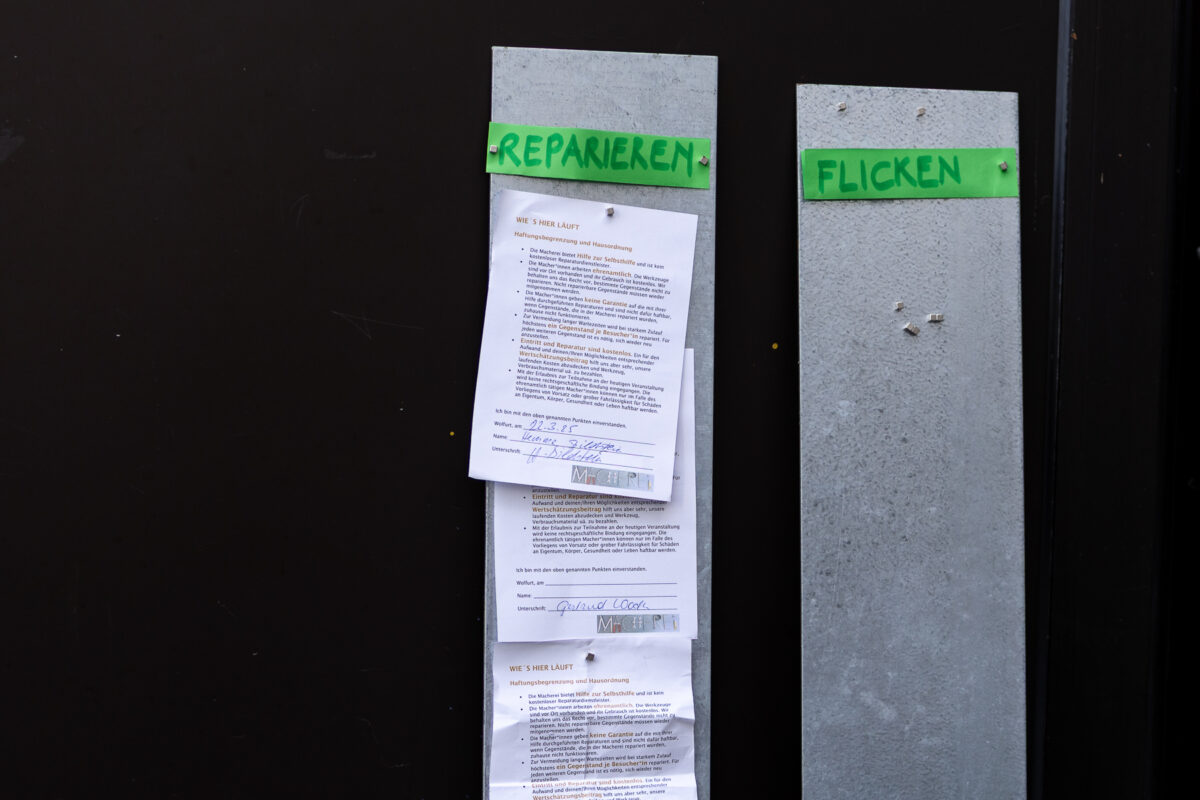 REPARIEREN
WIE´S HIER LÄUFT
Haftungsbegrenzung und Hausordnung
• Die Macherei bietet Hilfe zur Selbsthilfe und ist kein
kostenloser Reparaturdienstleister.
• Die Macher*innen arbeiten ehrenamtlich. Die Werkzeuge
sind vor Ort vorhanden und ihr Gebrauch ist kostenlos. Wir
behalten uns das Recht vor, bestimmte Gegenstände nicht zu
reparieren. Nicht reparierbare Gegenstände müssen wieder
mitgenommen werden.
• Die Macher*innen geben keine Garantie auf die mit ihrer
Hilfe durchgeführten Reparaturen und sind nicht dafür haftbar,
wenn Gegenstände, die in der Macherei repariert wurden,
zuhause nicht funktionieren.
• Zur Vermeidung langer Wartezeiten wird bei starkem Zulauf
höchstens ein Gegenstand je Besucher*in repariert. Für
jeden weiteren Gegenstand ist es nötig, sich wieder neu
anzustellen.
• Eintritt und Reparatur sind kostenlos. Ein für den
Aufwand und deinen/Ihren Möglichkeiten entsprechender
Wertschätzungsbeitrag hilft uns aber sehr, unsere
laufenden Kosten abzudecken und Werkzeug,
Verbrauchsmaterial uä. zu bezahlen.
• Mit der Erlaubnis zur Teilnahme an der heutigen Veranstaltung
wird keine rechtsgeschäftliche Bindung eingegangen. Die
ehrenamtlich tätigen Macher*innen können nur im Falle des
Vorliegens von Vorsatz oder grober Fahrlässigkeit für Schäden
an Eigentum, Körper, Gesundheit oder Leben haftbar werden.
Ich bin mit den oben genannten Punkten einverstanden.
Wolfurt, am 22.3.25
Name:
Unterschrift:
MACHEREI
anzustellen.
• Eintritt und Reparatur sind
Aufwand und deinen/Ihren Möglichkeiten entsprechender
Wertschätzungsbeitrag hilft uns aber sehr, unsere
laufenden Kosten abzudecken und Werkzeug,
Verbrauchsmaterial uä. zu bezahlen.
• Mit der Erlaubnis zur Teilnahme an der heutigen Veranstaltung
wird keine rechtsgeschäftliche Bindung eingegangen. Die
ehrenamtlich tätigen Macher*innen können nur im Falle des
Vorliegens von Vorsatz oder grober Fahrlässigkeit für Schäden
an Eigentum, Körper, Gesundheit oder Leben haftbar werden.
Ich bin mit den oben genannten Punkten einverstanden.
Wolfurt, am
Name:
Unterschrift: Gertrud
MACHEREI
WIE´S HIER LÄUFT
Haftungsbegrenzung und Hausordnung
• Die Macherei bietet Hilfe zur Selbsthilfe und ist kein
kostenloser Reparaturdienstleister.
• Die Macher*innen arbeiten ehrenamtlich. Die Werkzeuge
sind vor Ort vorhanden und ihr Gebrauch ist kostenlos. Wir
behalten uns das Recht vor, bestimmte Gegenstände nicht zu
reparieren. Nicht reparierbare Gegenstände müssen wieder
mitgenommen werden.
• Die Macher*innen geben keine Garantie auf die mit ihrer
Hilfe durchgeführten Reparaturen und sind nicht dafür haftbar,
wenn Gegenstände, die in der Macherei repariert wurden,
zuhause nicht funktionieren.
• Zur Vermeidung langer Wartezeiten wird bei starkem Zulauf
höchstens ein Gegenstand je Besucher*in repariert. Für
jeden weiteren Gegenstand ist es nötig, sich wieder neu
anzustellen.
• Eintritt und Reparatur sind kostenlos. Ein für den
Aufwand und deinen/Ihren Möglichkeiten entsprechender
Wertschätzungsbeitrag hilft uns aber sehr, unsere
FLICKEN